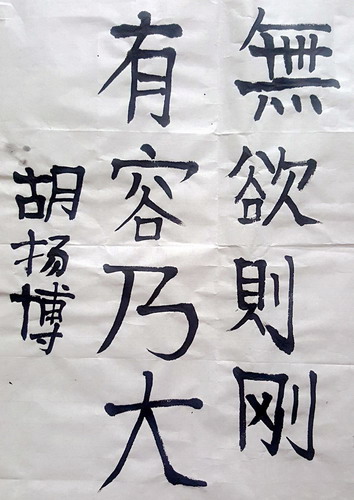 無欲則刚
有容乃大
胡扬博